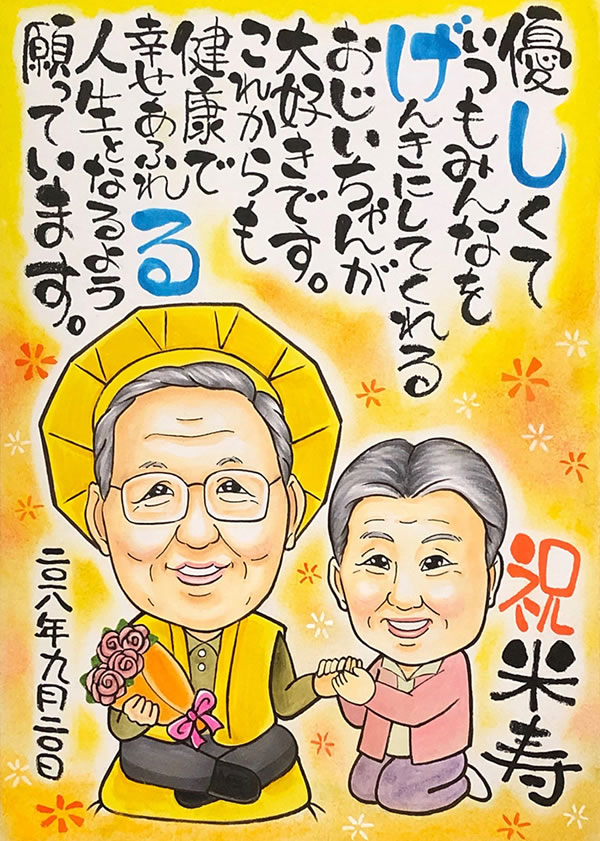 優しくて
いつもみんなを
げんきにしてくれる
おじいちゃんが
大好きです。
これからも
健康で
幸せあふれる
人生となるよう
願っています。
祝米寿
二〇一八年九月二〇日